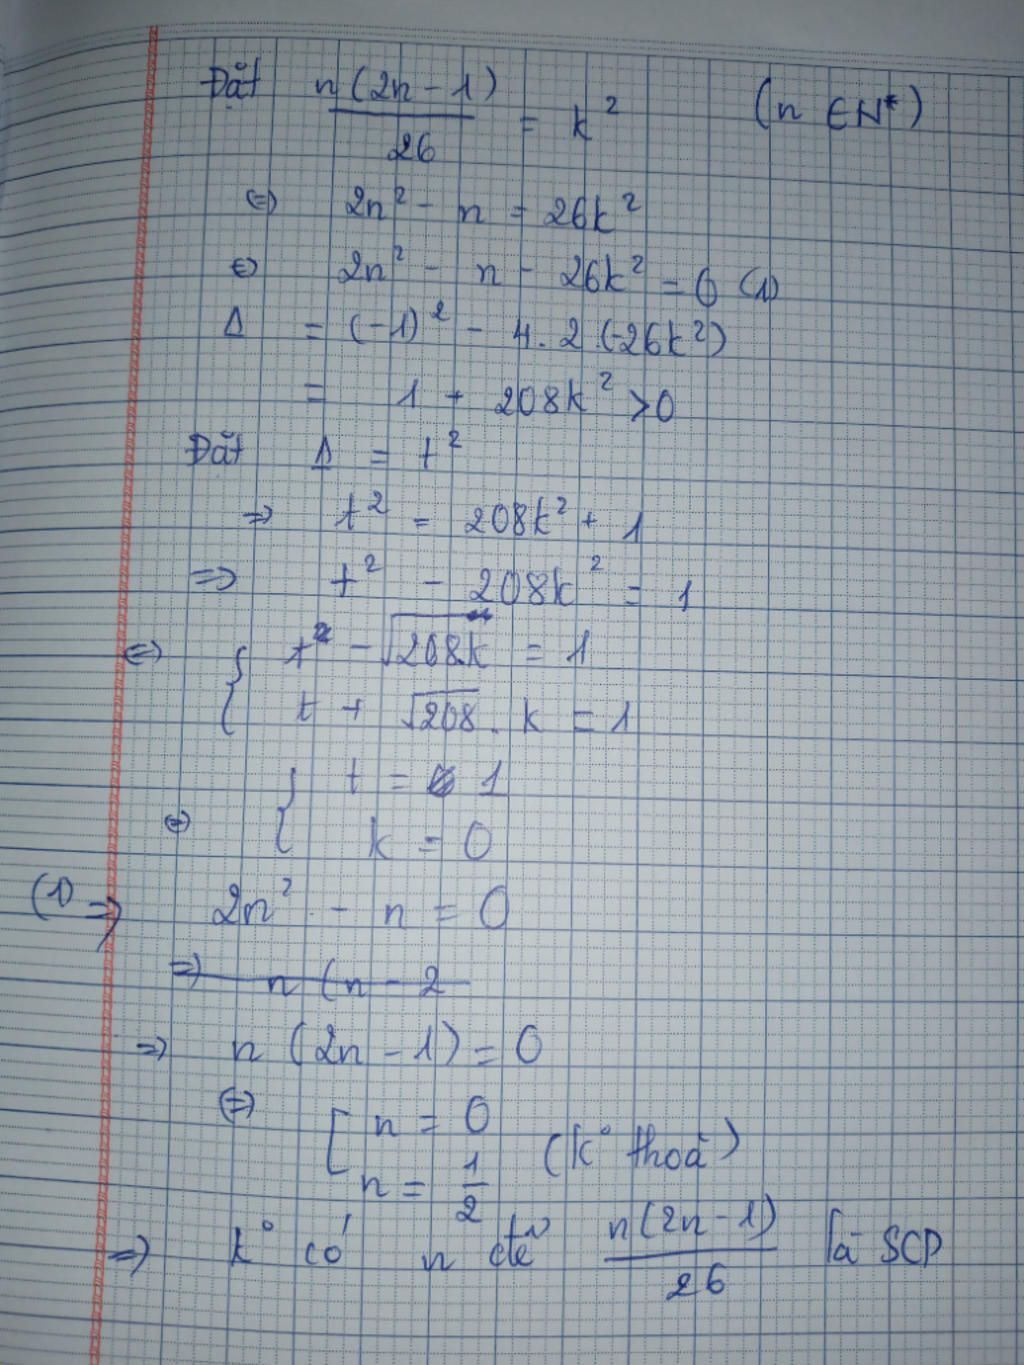 Đặt n(2n-1)/26 = k² (n ∈ N*)
⇔ 2n² - n = 26k²
⇔ 2n² - n - 26k² = 0 (1)
Δ = (-1)² - 4.2.(-26k²)
= 1 + 208k² > 0
Đặt Δ = t²
⇒ t² = 208k² + 1
⇒ t² - 208k² = 1
⇔ { t - √208.k = 1
t + √208.k = 1
⇔ { t = 1
k = 0
(1) ⇒ 2n² - n = 0
⇒ n(n-2
⇒ n(2n-1) = 0
⇔ [ n = 0
n = 1/2 (k° thoả)
⇒ k° có n để n(2n-1)/26 là SCP